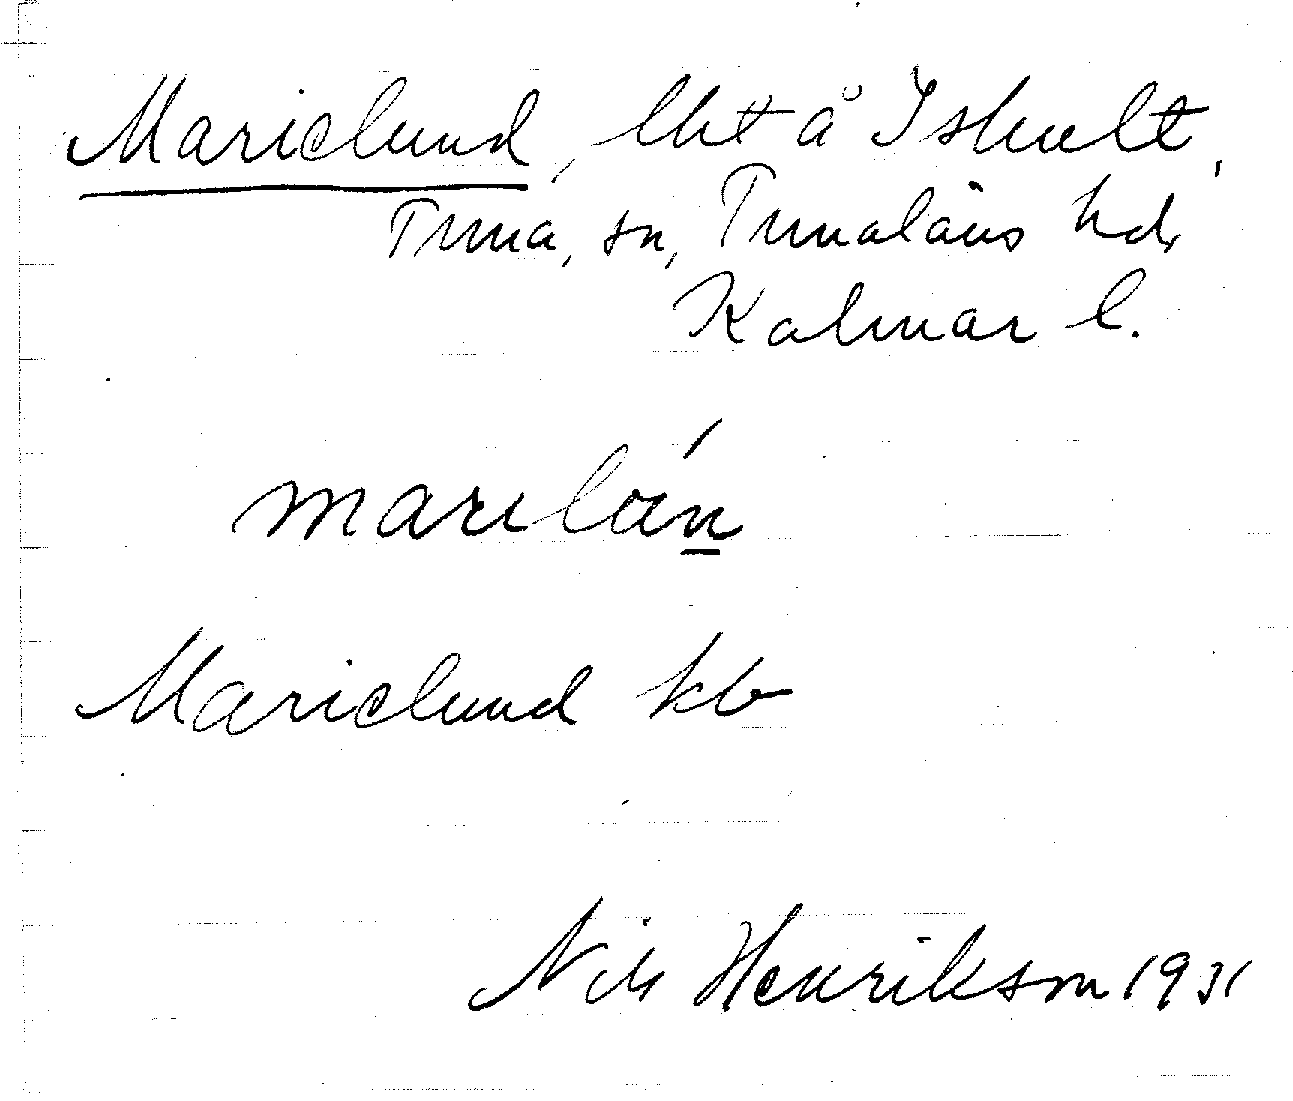 Marielund, lht å Ishult,
Tuna, sn, Tunaläns hd,
Kalmar l.
marilán
Marielund kb
Nils Henrikson 1931